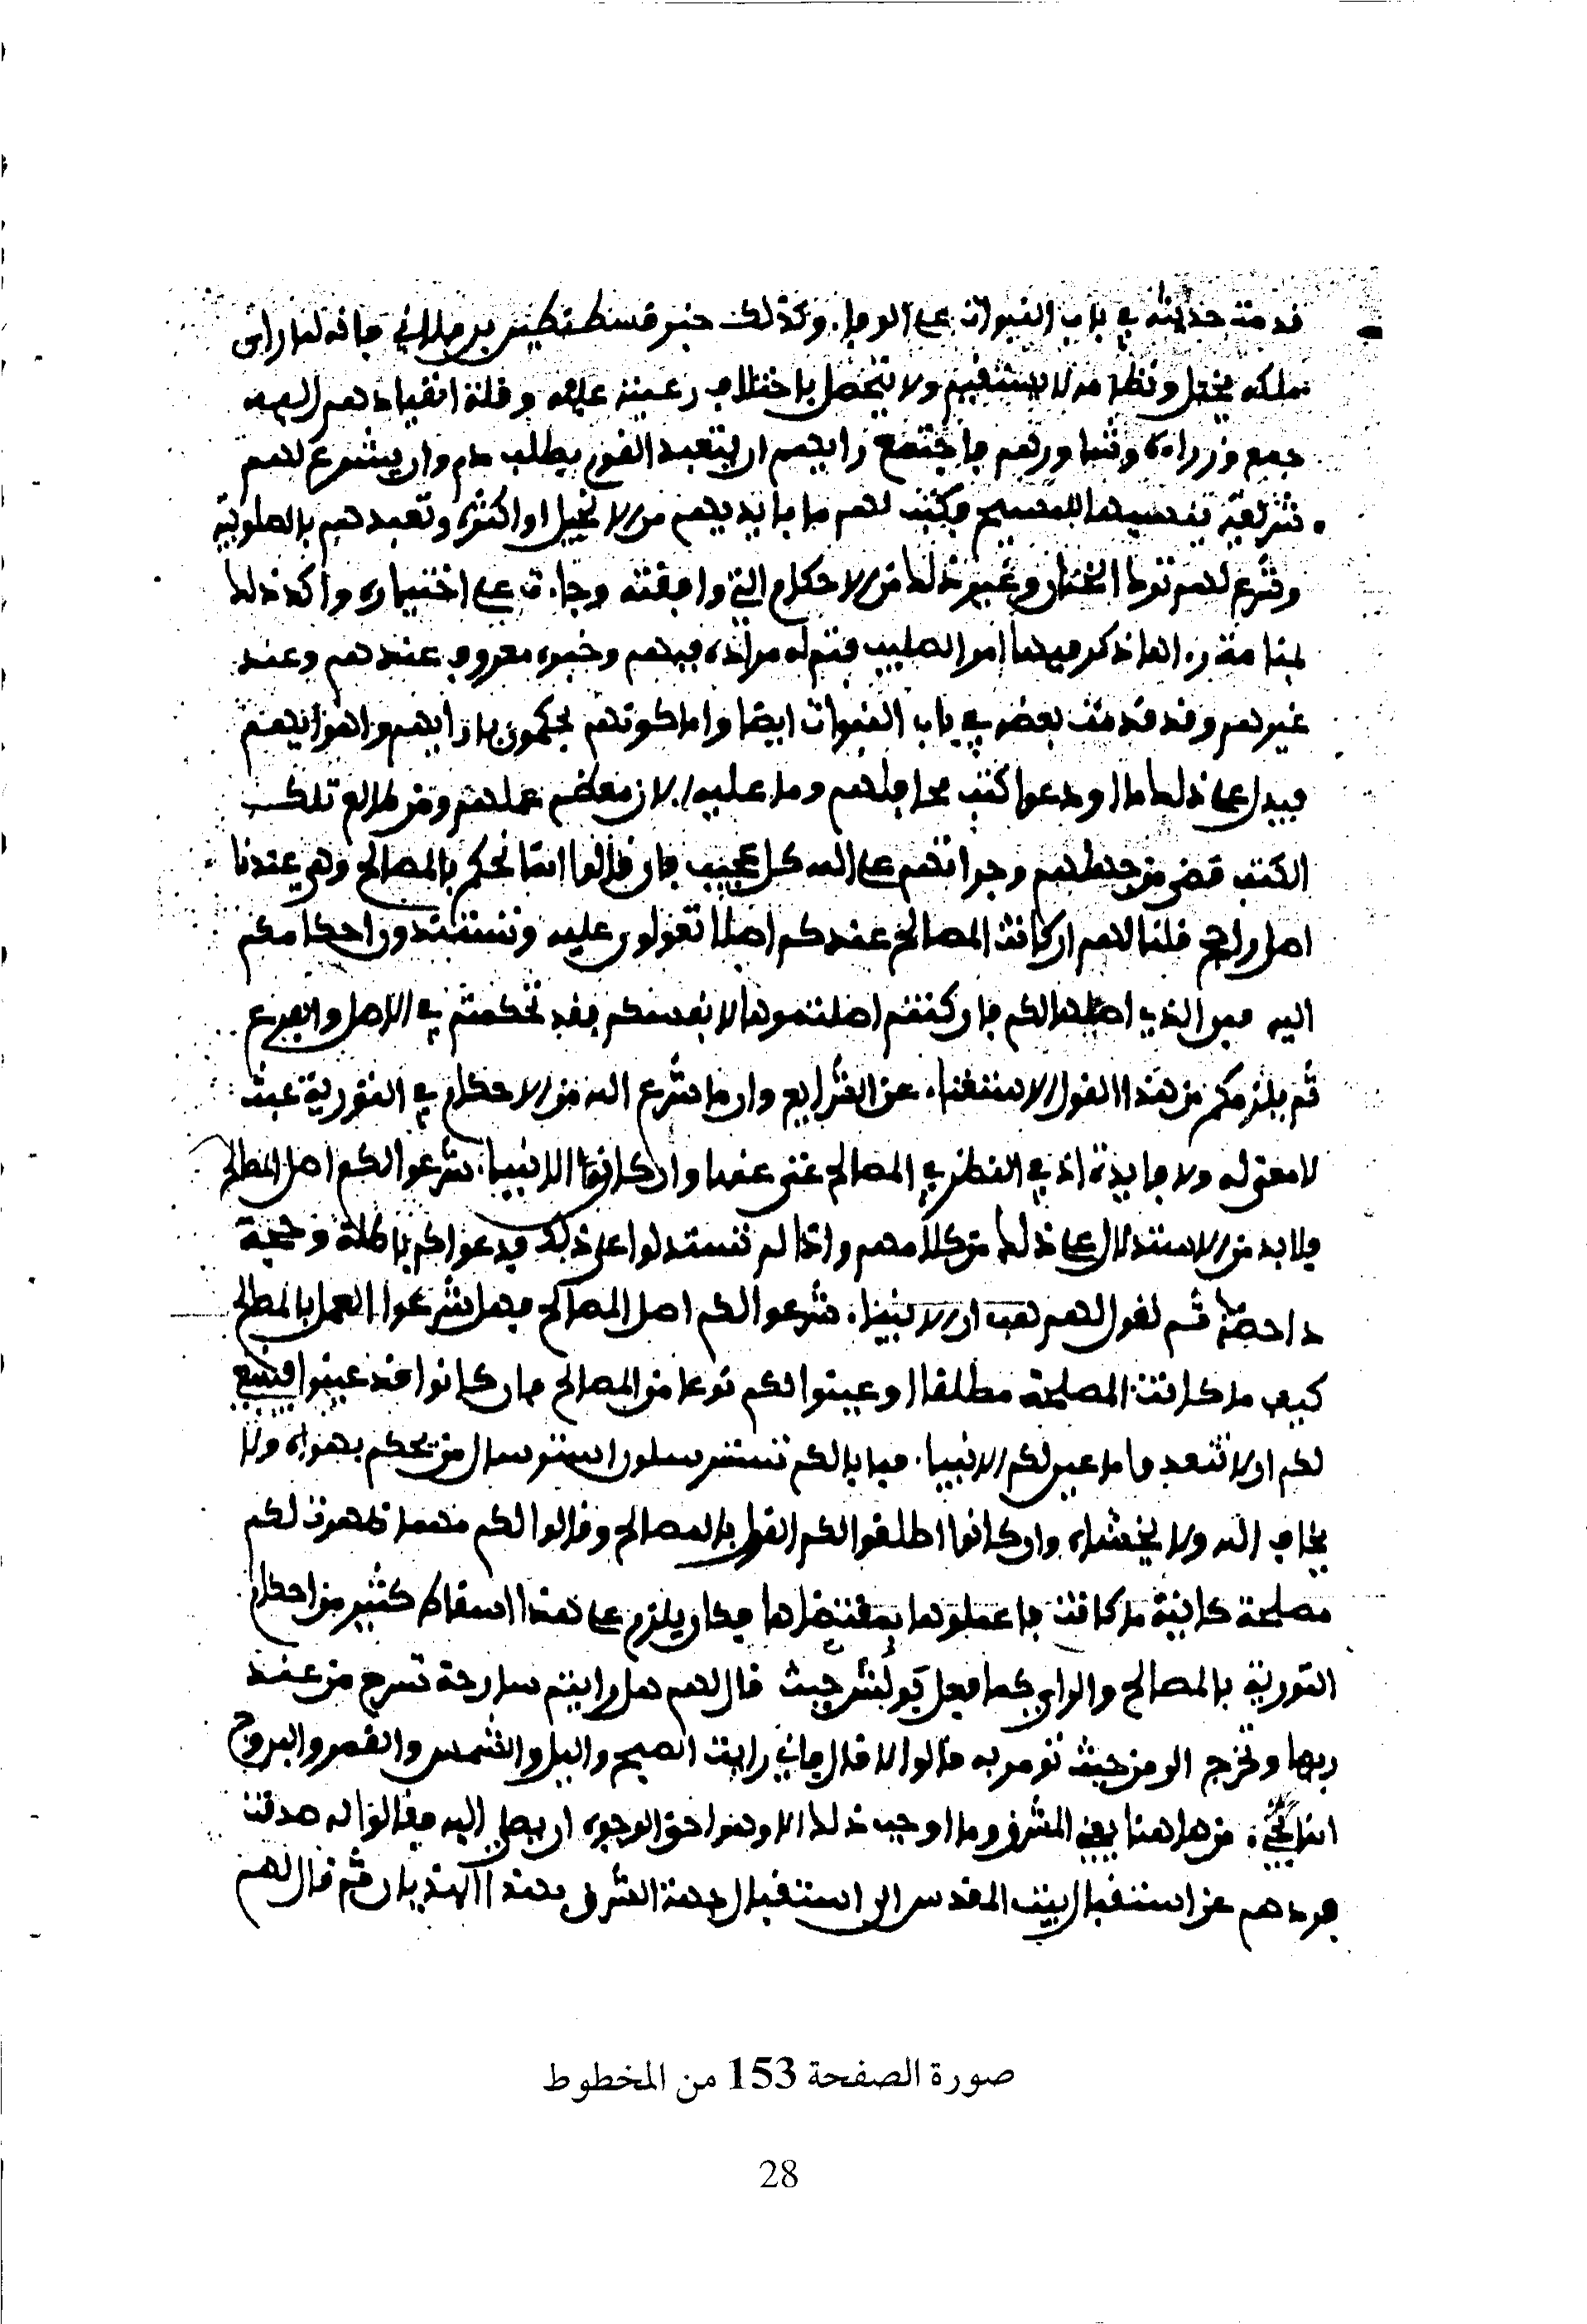 قدمت حديثه في باب النبوات على الوفاء. وكذلك خبر قسطنطين بن هيلاني فانه لما راى
ملكه يختل ونظامه لا يستقيم ولا يتحصل باختلاف رعيته عليه وقلة انقيادهم اليه
جمع وزراءه وشاورهم فاجتمع رايهم ان يتعبد القوم بطلب دم وان يشرع لهم
شريعة ينسبها للمسيح فكتب لهم ما بايديهم من الانجيل او اكثره وتعبدهم بالصلوبية
وشرع لهم ترك الختان وغير ذلك من الاحكام التي وافقته وجاءت على اختياره واكد ذلك
بمنامة راها ذكر فيها امر الصليب فتم له مراده فيهم وخبره معروف عندهم وعند
غيرهم وقد قدمت بعضه في باب النبوات ايضا واما كونهم يحكمون بارايهم واهوائهم
فيدل على ذلك ما اودعوا كتب محافلهم وما عليه الان معظم عملهم ومن طالع تلك
الكتب قضى من جهلهم وجراتهم على الله كل عجيب فان قالوا انما نحكم بالمصالح وهي عندنا
اصل راجح قلنا لهم ان كانت المصالح عندكم اصلا تعولون عليه وتستندون احكامكم
اليه فمن الذي اصلها لكم فان كنتم اصلتموها لانفسكم فقد تحكمتم في الاصل والفرع
ثم يلزمكم من هذا القول الاستغناء عن الشرايع وان ما شرع الله من الاحكام في التورية عبث
لا معنى له ولا فايدة اذ في النظر في المصالح غنى عنها وان كانوا الانبياء شرعوا لكم اصل المصالح
فلا بد من الاستدلال على ذلك من كلامهم واذا لم تستدلوا على ذلك فدعواكم باطلة وحجة
داحضة ثم نقول لهم نعم ان الانبياء شرعوا لكم اصل المصالح فهل شرعوا العمل بالمصالح
كيف ما كانت المصلحة مطلقا او عينوا لكم نوعا من المصالح فان كانوا قد عينوا فينبغي
لكم ان لا تتعدوا ما عين لكم الانبياء فما بالكم تسترسلون استرسال من يحكم بهواه ولا
يخاف الله ولا يخشاه وان كانوا اطلقوا لكم القول بالمصالح وقالوا لكم مهما ظهرت لكم
مصلحة كاينة ما كانت فاعملوها بمقتضاها فكان يلزم على هذا اسقاط كثير من احكام
التورية بالمصالح والراي كما فعل بولش حيث قال لهم هل رايتم سارحة تسرح من عند
ربها وتخرج الا من حيث تومر به قالوا لا قال فاني رايت الصبح والليل والشمس والقمر والبروج
انما تجيء من هاهنا يعني المشرق وما اوجب ذلك الا وهو احق الوجوه ان يصلى اليه فقالوا له صدقت
فردهم عن استقبال بيت المقدس الى استقبال جهة الشرق بهذا الهذيان ثم قال لهم
صورة الصفحة 153 من المخطوط
28